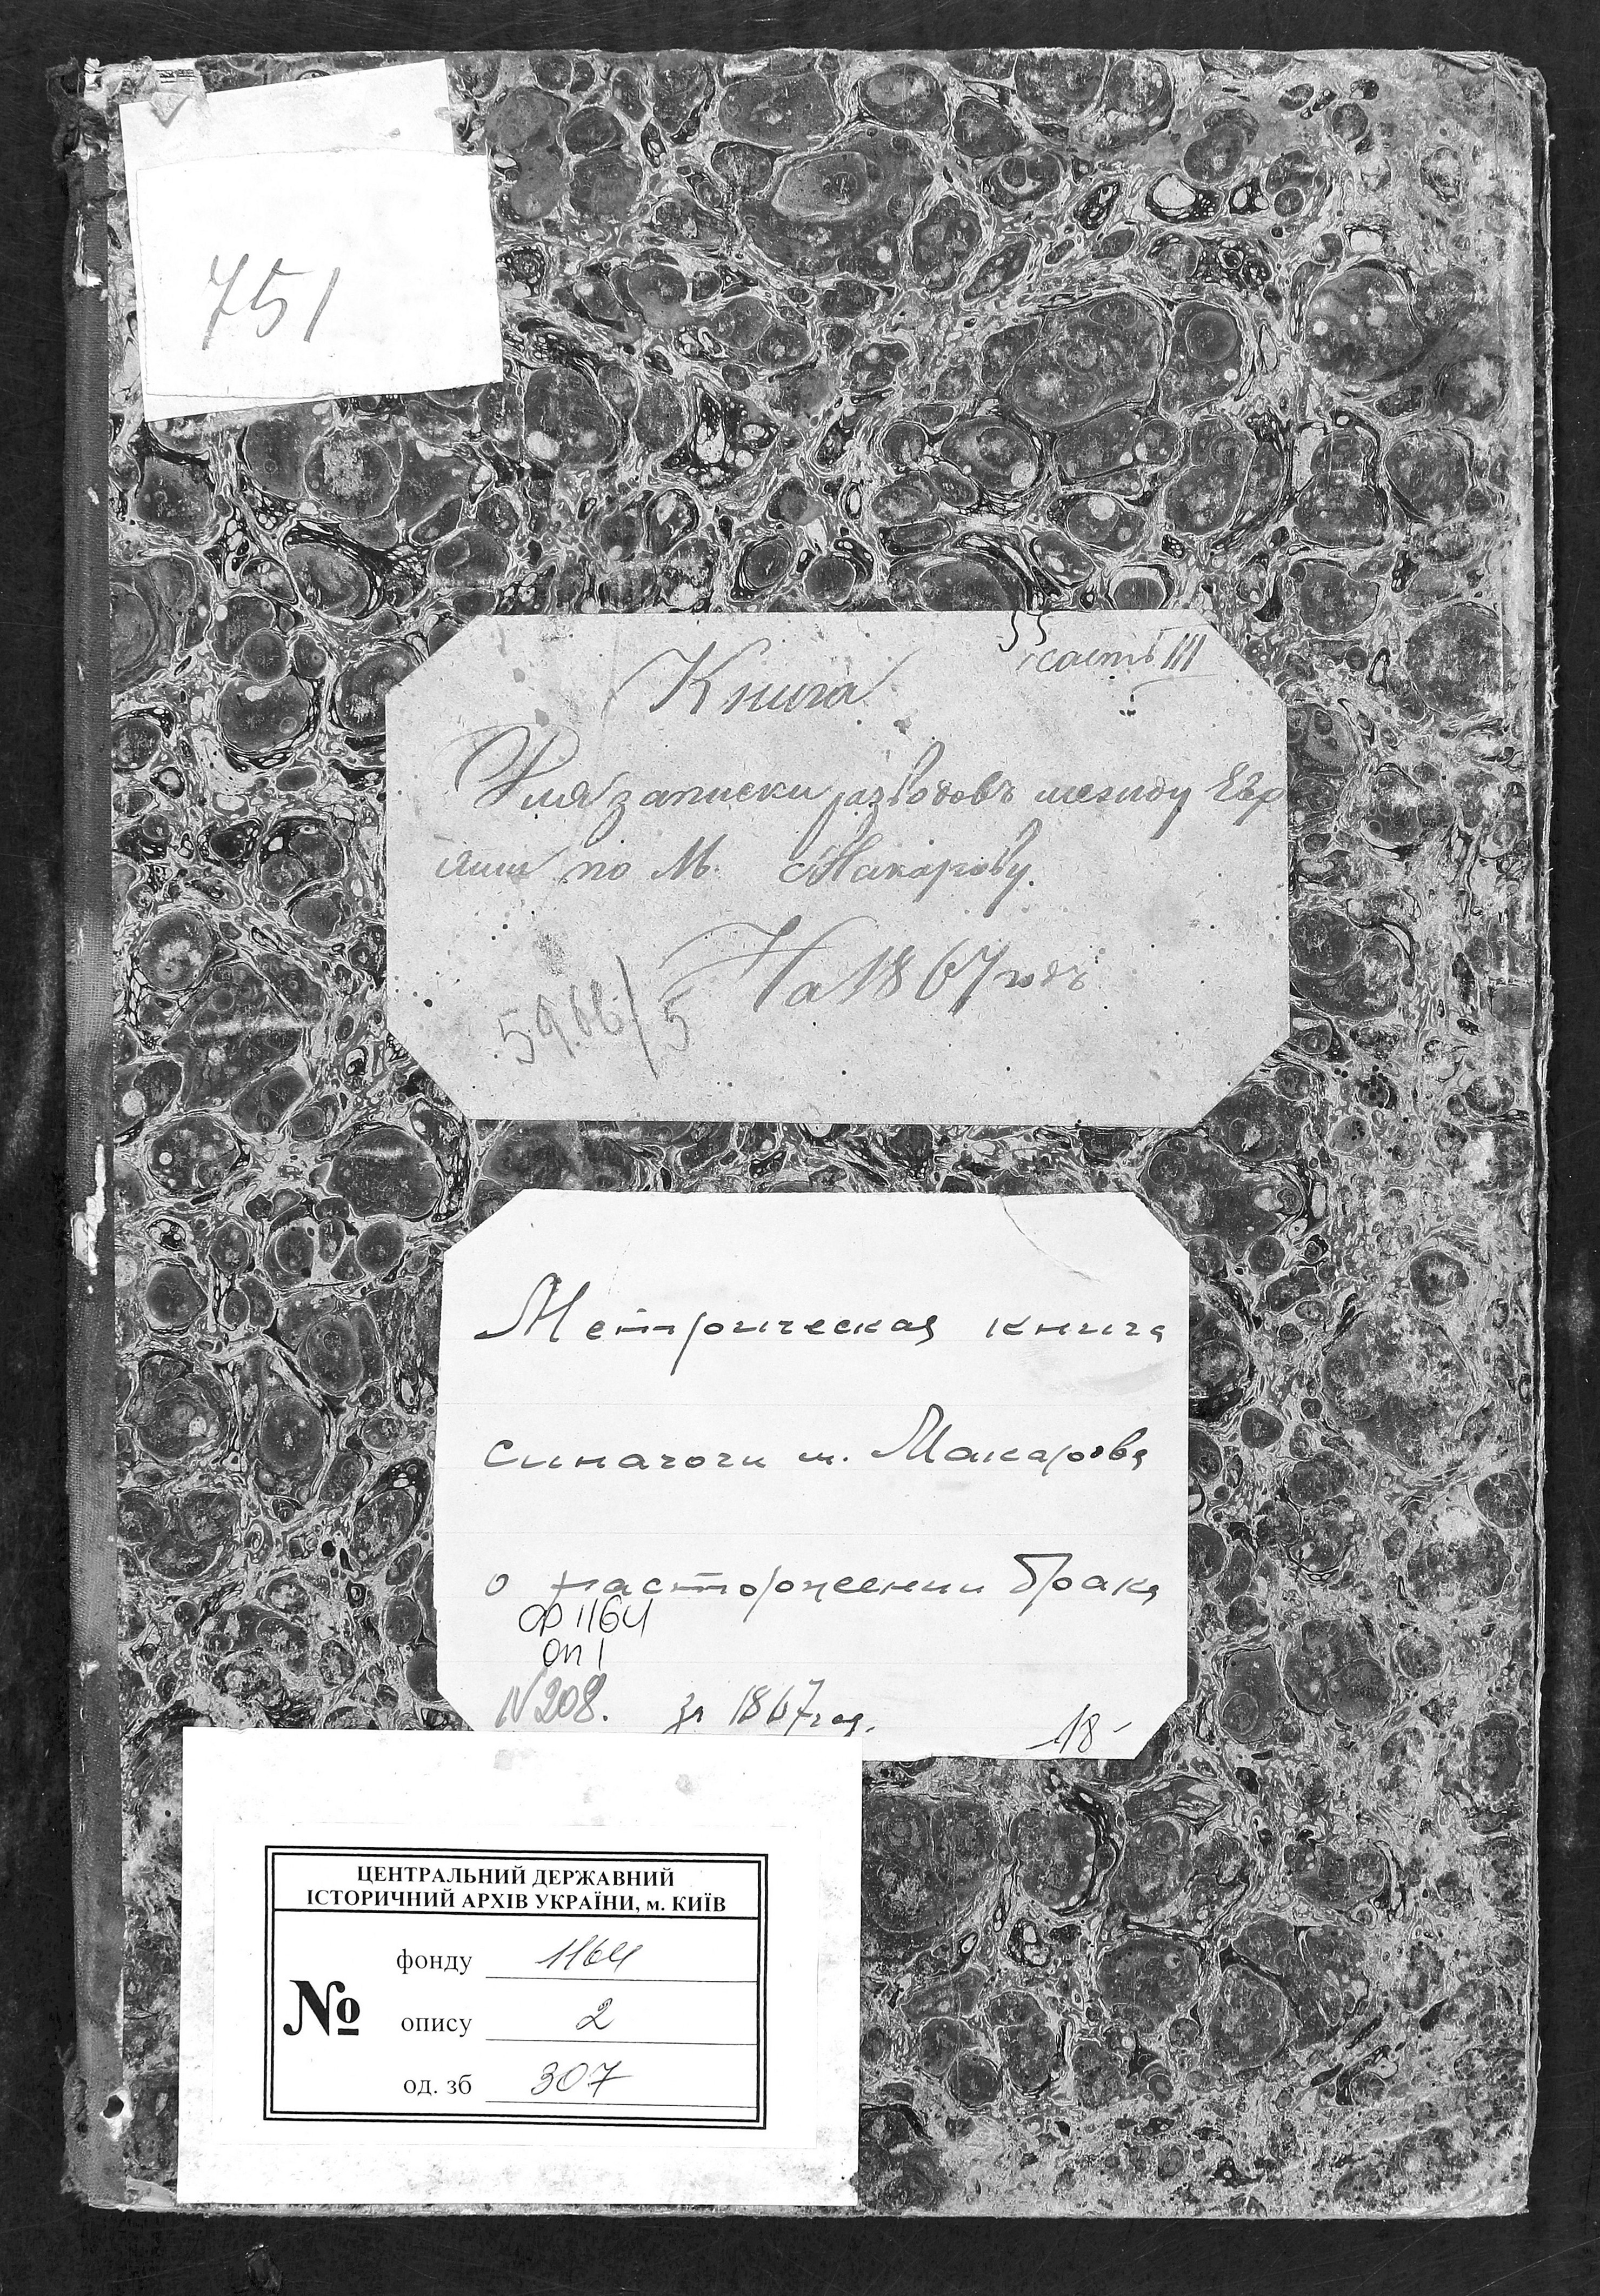 751
часть III
Книга
Для записки разводовъ между Евр
еями по М. Макарову.
На 1867 годъ
5966/5
Метрическая книга
синагоги м. Макарова
о расторжении брака
Ф 1164
оп 1
N 208. за 1867 год. 18-
ЦЕНТРАЛЬНИЙ ДЕРЖАВНИЙ
ІСТОРИЧНИЙ АРХІВ УКРАЇНИ, м. КИЇВ
фонду 1164
№ опису 2
од. зб 307